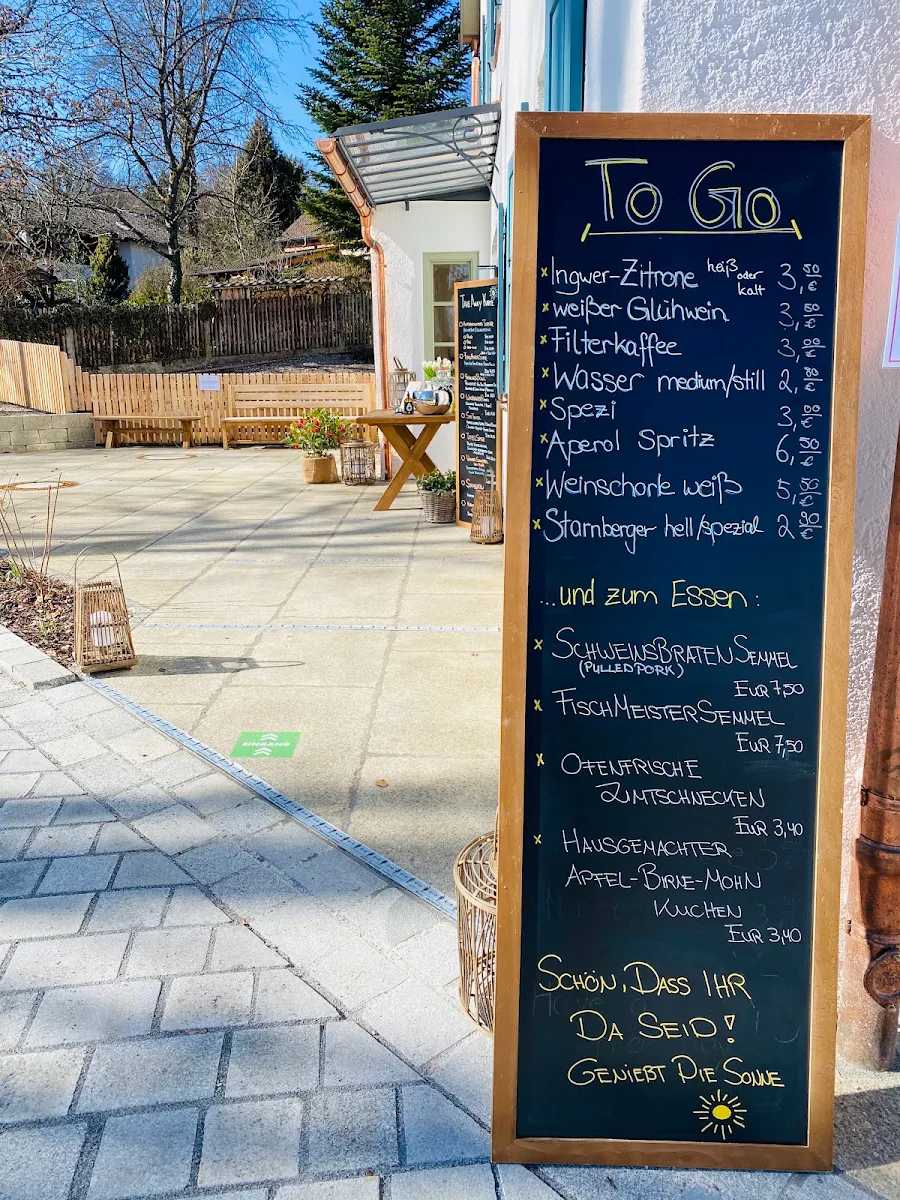 To Go
Ingwer-Zitrone heiß oder kalt 3,50 €
weißer Glühwein 3,50 €
Filterkaffee 3,
Wasser medium/still 2,
Spezi 3,
Aperol Spritz 6,50 €
Weinschorle weiß 5,50 €
Starnberger hell/spezial 2
...und zum Essen:
SCHWEINSBRATEN SEMMEL
(PULLED PORK)
EUR 7,50
FISCHMEISTER SEMMEL
EUR 7,50
OFENFRISCHE
ZIMTSCHNECKEN
EUR 3,40
HAUSGEMACHTER
APFEL-BIRNE-MOHN
KUCHEN
EUR 3,40
SCHÖN, DASS IHR
DA SEID!
GENIEBT DIE SONNE
TAKE AWAY
EINGANG